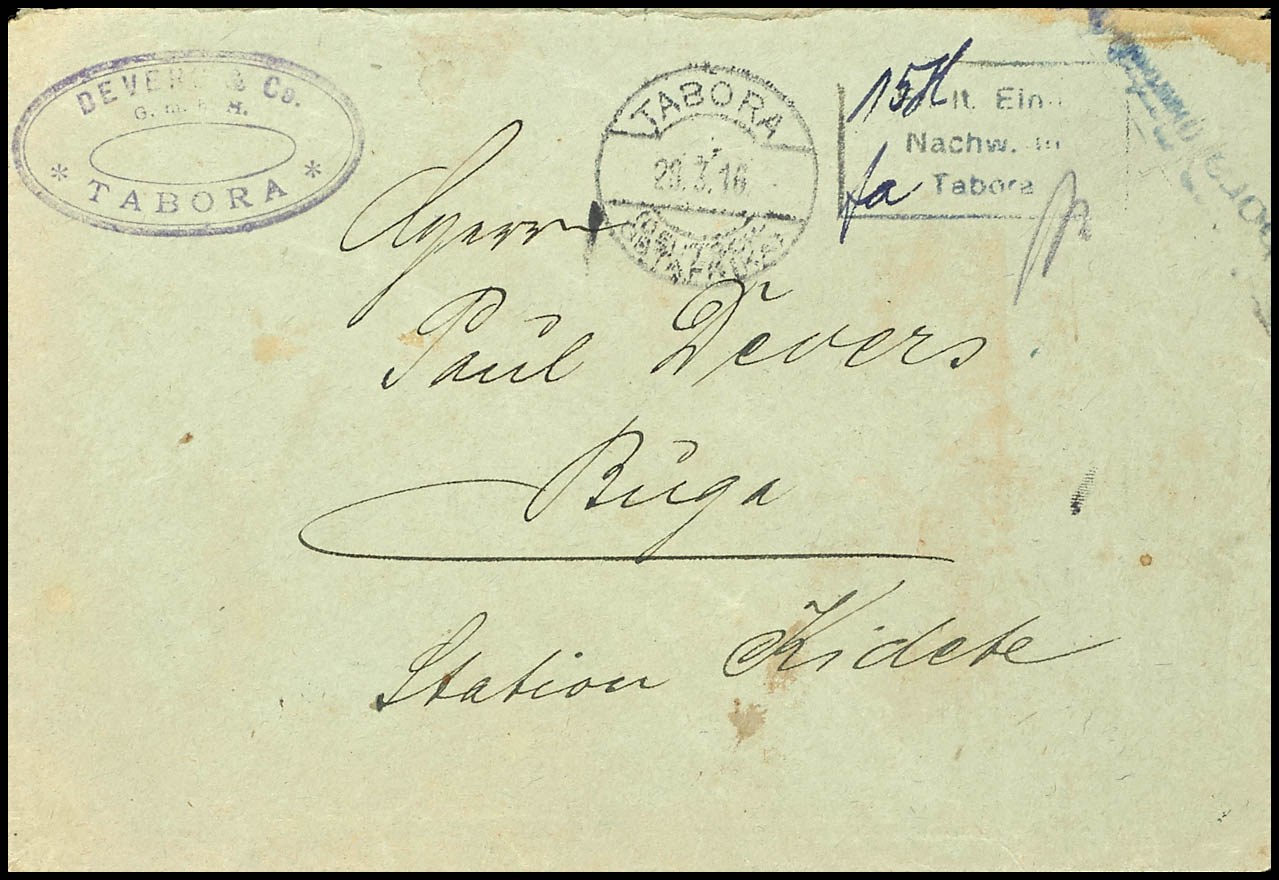 DEVERS & Co.
G. m. b. H.
* TABORA *
TABORA
29.3.16
DEUTSCH-
OSTAFRIKA
15H lt. Ein-
Nachw. in
fa Tabora
Herrn
Paul Devers
Buga
Station Kidete